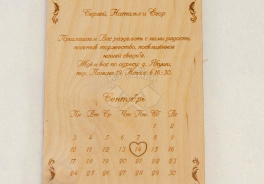 Сергей, Наталья и Егор
Приглашаем Вас разделить с нами радость,
торжество, посвящённое
нашей свадьбе.
Ждём вас по адресу: д.
16:30.
Сентябрь
Пн Вт Ср Чт Пт Сб Вс
1 2
3 4 5 6 7 8 9
10 11 12 13 14 15 16
17 18 19 20 21 22 23
24 25 26 27 28 29 30